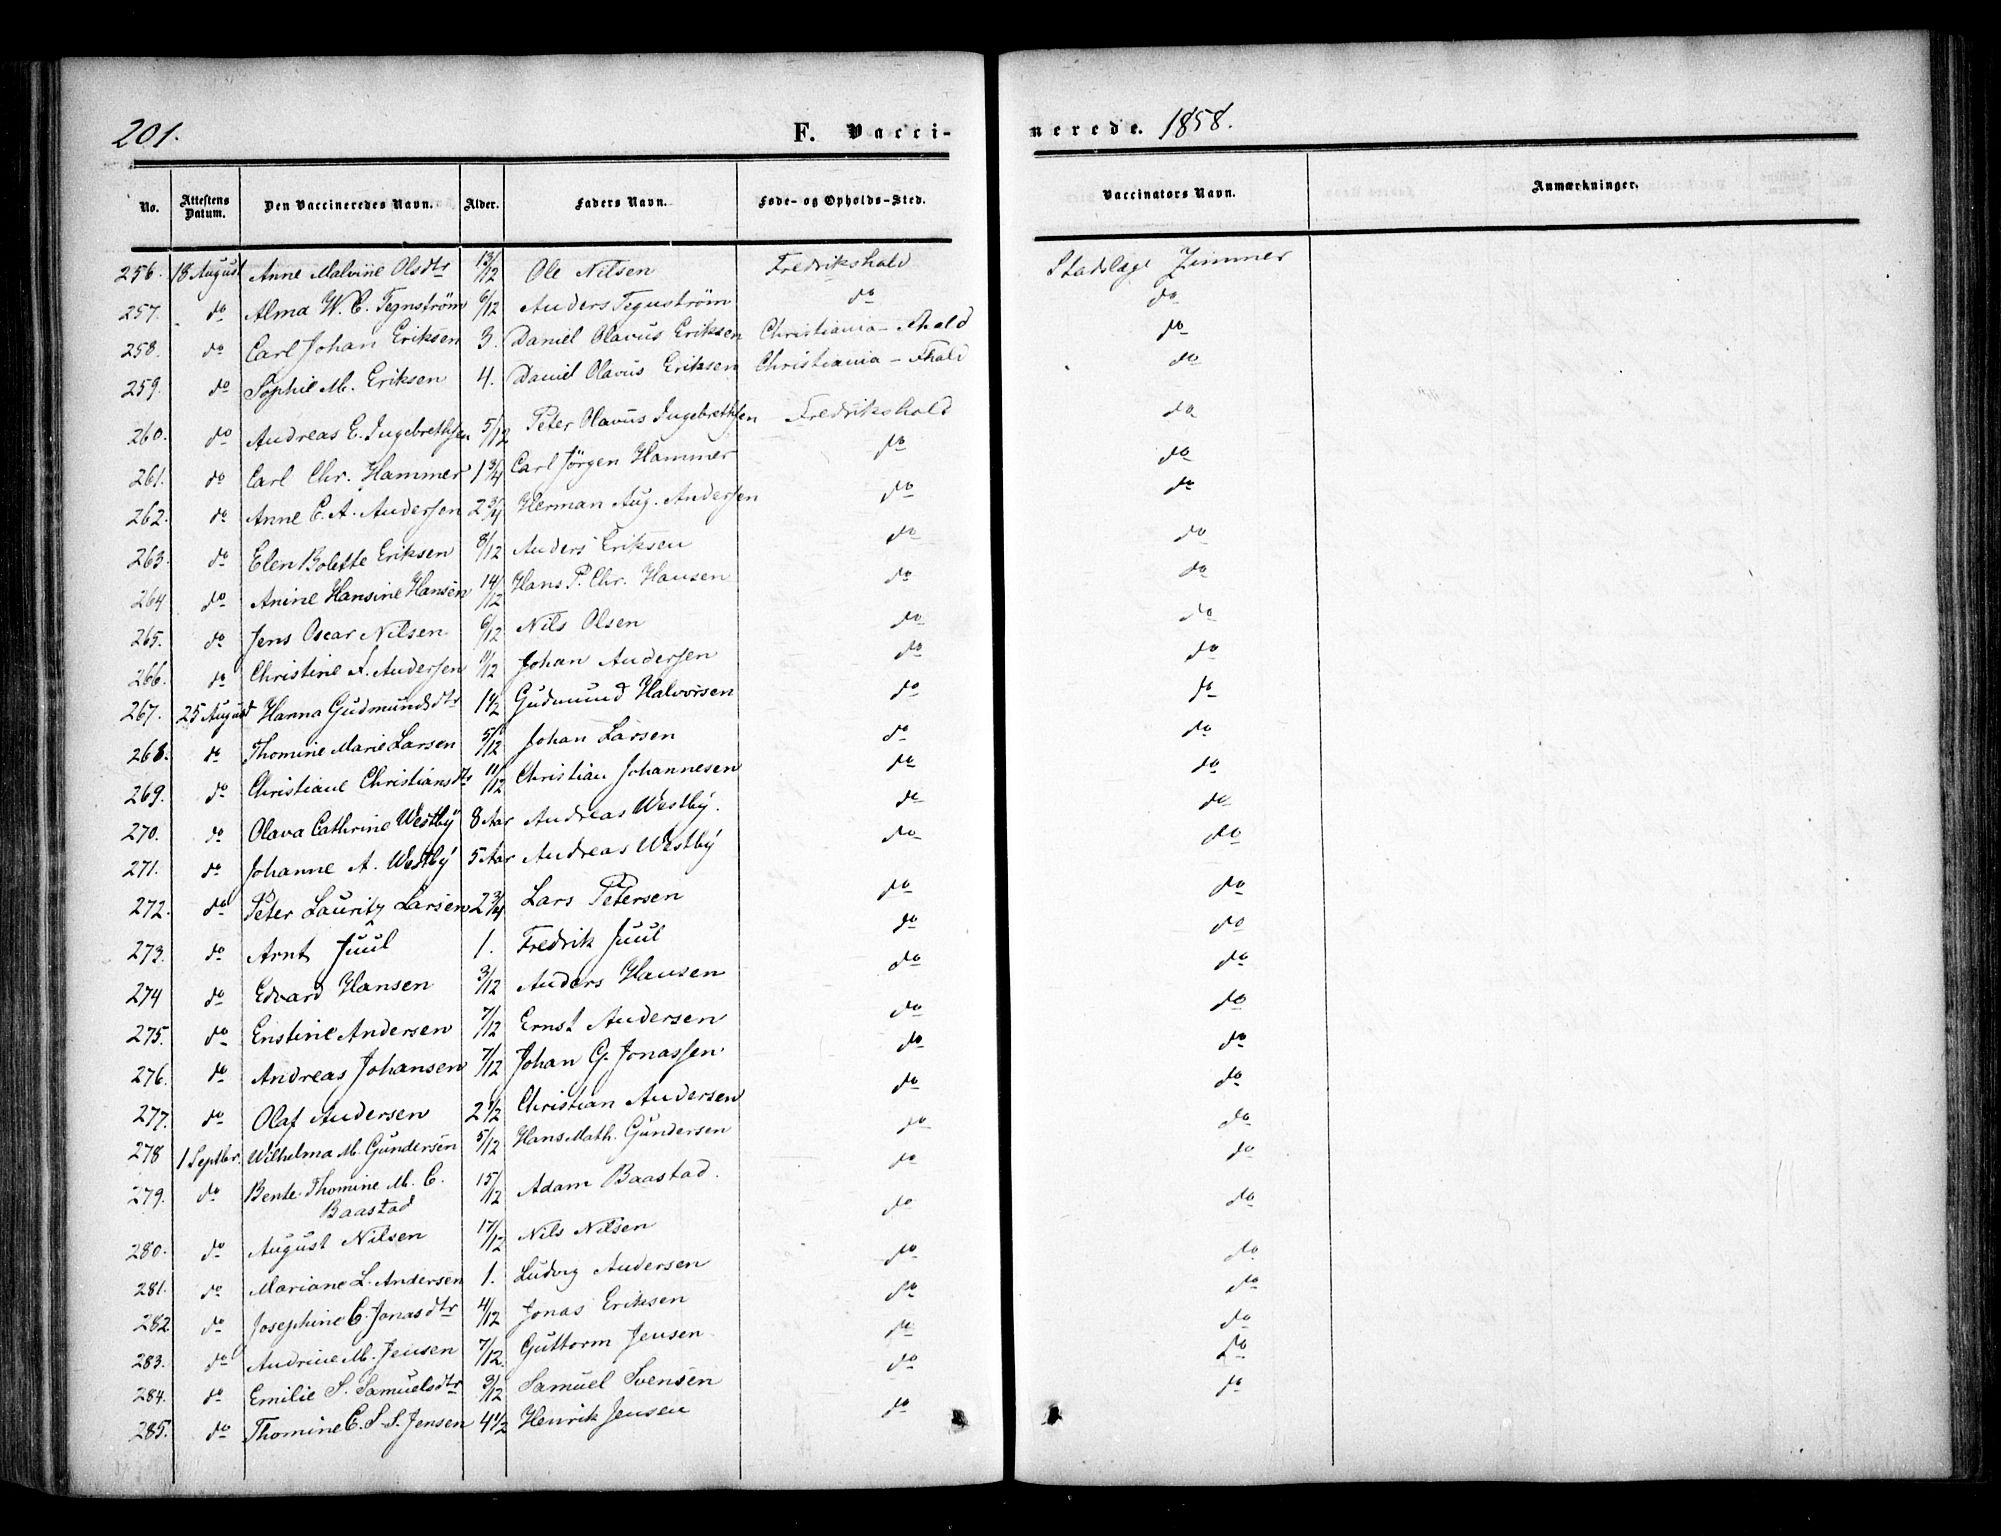 201. F. Vacci- nerede. 1858.
No. Attestens Datum. Den Vaccineredes Navn. Alder. Faders Navn. Føde- og Opholds-Sted. Vaccinators Navn. Anmærkninger.
256. 18 August Anne Malvine Olsdtr 13/12 Ole Nilsen Fredrikshald Stadslæge Zimmer
257. do Alma W. C. Tegnström 6/12 Anders Tegnström do do
258. do Carl Johan Eriksen 3. Daniel Olavus Eriksen Christiania - Fhald do
259. do Sophie M. Eriksen 4. Daniel Olavus Eriksen Christiania - Fhald do
260. do Andreas E. Ingebrethsen 5/12 Peter Olavus Ingebrethsen Fredrikshald do
261. do Carl Chr. Hammer 1 3/4 Carl Jörgen Hammer do do
262. do Anne C. A. Andersen 2 3/4 Herman Aug. Andersen do do
263. do Elen Bolette Eriksen 8/12 Anders Eriksen do do
264 do Anine Hansine Hansen 14/12 Hans P. Chr. Hansen do do
265. do Jens Oscar Nilsen 6/12 Nils Olsen do do
266. do Christine F. Andersen 11/12 Johan Andersen do do
267. 25 August Hanna Gudmundsdtr 1 1/2 Gudmund Halvorsen do do
268. do Thomine Marie Larsen 5/12 Johan Larsen do do
269. do Christiane Christiansdtr 11/12 Christian Johannesen do do
270. do Olava Cathrine Westbÿ 8 Aar Andreas Westbÿ. do do
271. do Johanne A. Westbÿ 5 Aar Andreas Westbÿ do do
272. do Peter Lauritz Larsen 2 3/4 Lars Petersen do do
273. do Arnt Juul 1. Fredrik Juul do do
274 do Edvard Hansen 3/12 Anders Hansen do do
275. do Enstine Andersen 7/12 Ernst Andersen do do
276. do Andreas Johansen 7/12 Johan G. Jonassen do do
277. do Olaf Andersen 2 1/2 Christian Andersen do do
278 1 Septbr. Wilhelma M. Gundersen 5/12 Hans Math. Gundersen do do
279. do Bente Thomine M. C. 15/12 Adam Baastad. do do
Baastad
280. do August Nilsen 17/12 Nils Nilsen do do
281. do Mariane L. Andersen 1. Ludvig Andersen do do
282 do Josephine C. Jonasdtr 4/12 Jonas Eriksen do do
283. do Andrine M. Jensen 7/12. Guttorm Jensen do do
284. do Emilie S. Samuelsdtr 3/12 Samuel Svensen do do
285. do Thomine C. S. S. Jensen 4 1/2 Henrik Jensen do do